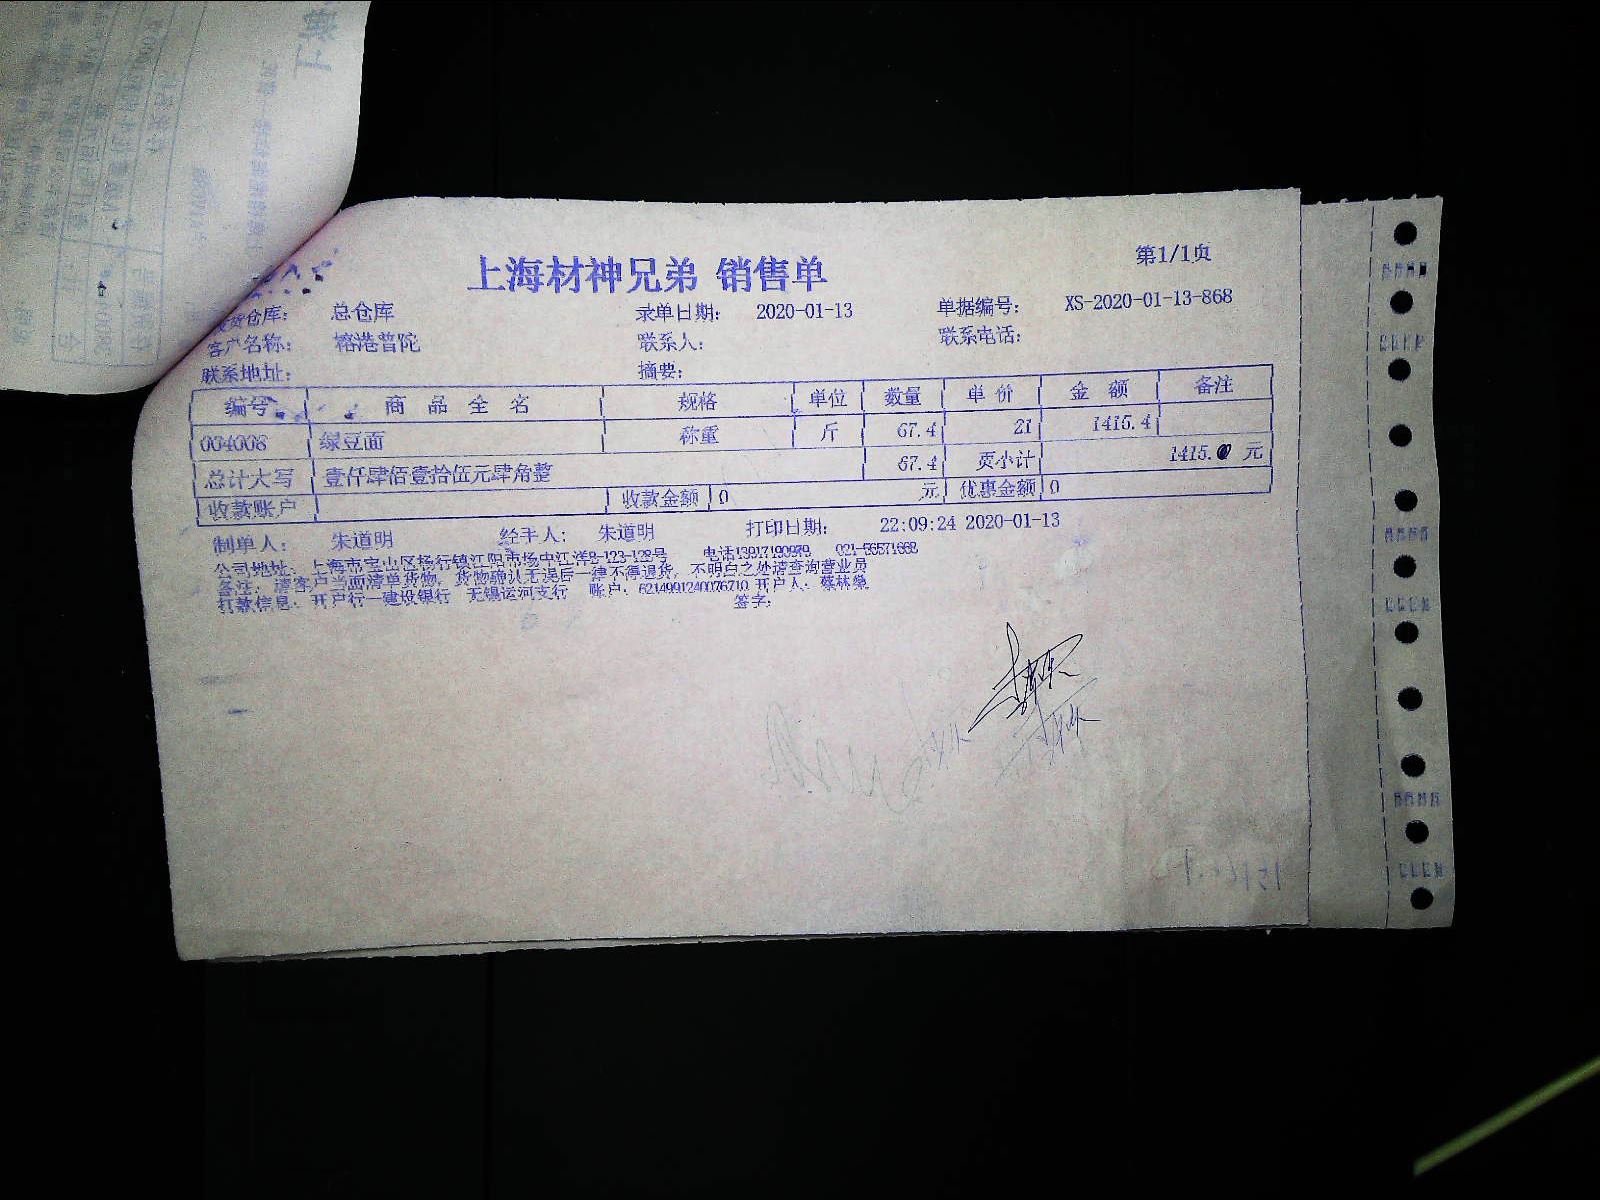 上海材神兄弟 销售单
第1/1页
发货仓库： 总仓库 录单日期： 2020-01-13 单据编号： XS-2020-01-13-868
客户名称： 榕港普陀 联系人： 联系电话：
联系地址： 摘要：
编号 商品全名 规格 单位 数量 单价 金额 备注
004008 绿豆面 称重 斤 67.4 21 1415.4
总计大写 壹仟肆佰壹拾伍元肆角整 67.4 页小计 1415. 元
收款账户 收款金额 0 元 优惠金额 0
制单人： 朱道明 经手人： 朱道明 打印日期： 22:09:24 2020-01-13
公司地址：上海市宝山区杨行镇江阳市场中江洋B-123-128号 电话13917190979 021-56571668
备注：请客户当面清单货物，货物确认无误后一律不得退货，不明白之处请查询营业员
打款信息：开户行—建设银行 无锡运河支行 账户：6214991240076710 开户人：蔡林燊
签字：